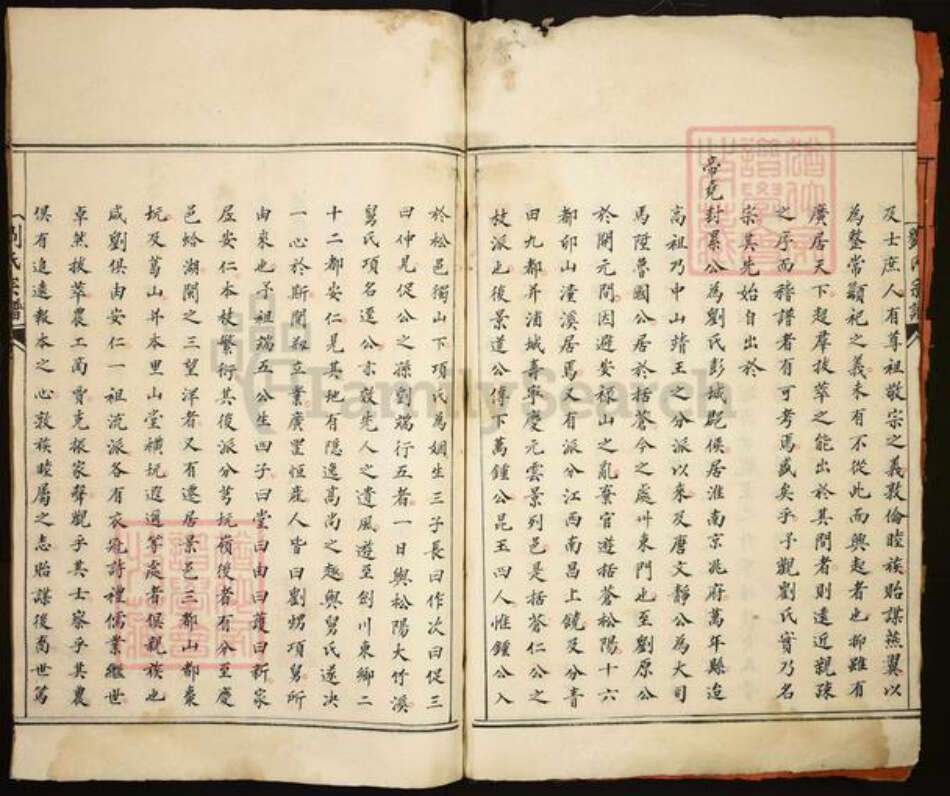 及士庶人有尊祖敬宗之義敦倫睦族貽謀燕翼以
為鰲常顓祀之義未有不從此而興起者也抑雖有
廣居天下超羣拔萃之能出於其間者則遠近親疎
之序而稽譜者有可考焉盛矣乎予觀劉氏實乃名
宗其先始自出於
帝堯封累公為劉氏彭城郡侯居淮南京兆府萬年縣迨
高祖乃中山靖王之分派以來及唐文靜公為大司
馬陞魯國公居於括蒼今之處州東門也至劉原公
於開元間因避安祿山之亂棄官遊括蒼松陽十六
都卯山潼溪居焉又有派分江西南昌上饒及分青
田九都并浦城壽寧慶元雲景列邑是括蒼仁公之
枝派也後景道公傳下萬鍾公昆玉四人惟鍾公入
於松邑獨山下項氏為姻生三子長曰作次曰促三
曰仲見促公之孫劉端行五者一日與松陽大竹溪
舅氏項名運公言談先人之遺風遊至劍川東鄉二
十二都安仁見其地有隱逸高尚之趣與舅氏遂決
一心於斯開剏立業廣置恒產人皆曰劉甥項舅所
由來也予祖端五公生四子曰堂曰由曰護曰祈家
居安仁本枝繁衍其後派分芎坑嶺後者有分至慶
邑蛤湖関之三望洋者又有遷居景邑三都山都棗
坑及葛山并本里山堂橫坑遐邇等處者俱親族也
咸劉俱由安仁一祖流派各有衣冠詩禮儒業繼世
卓然拔萃農工商賈克振家聲觀乎其士察乎其農
俱有追遠報本之心敦族睦屬之志貽謀後裔世篤
劉氏宗譜
FamilySearch